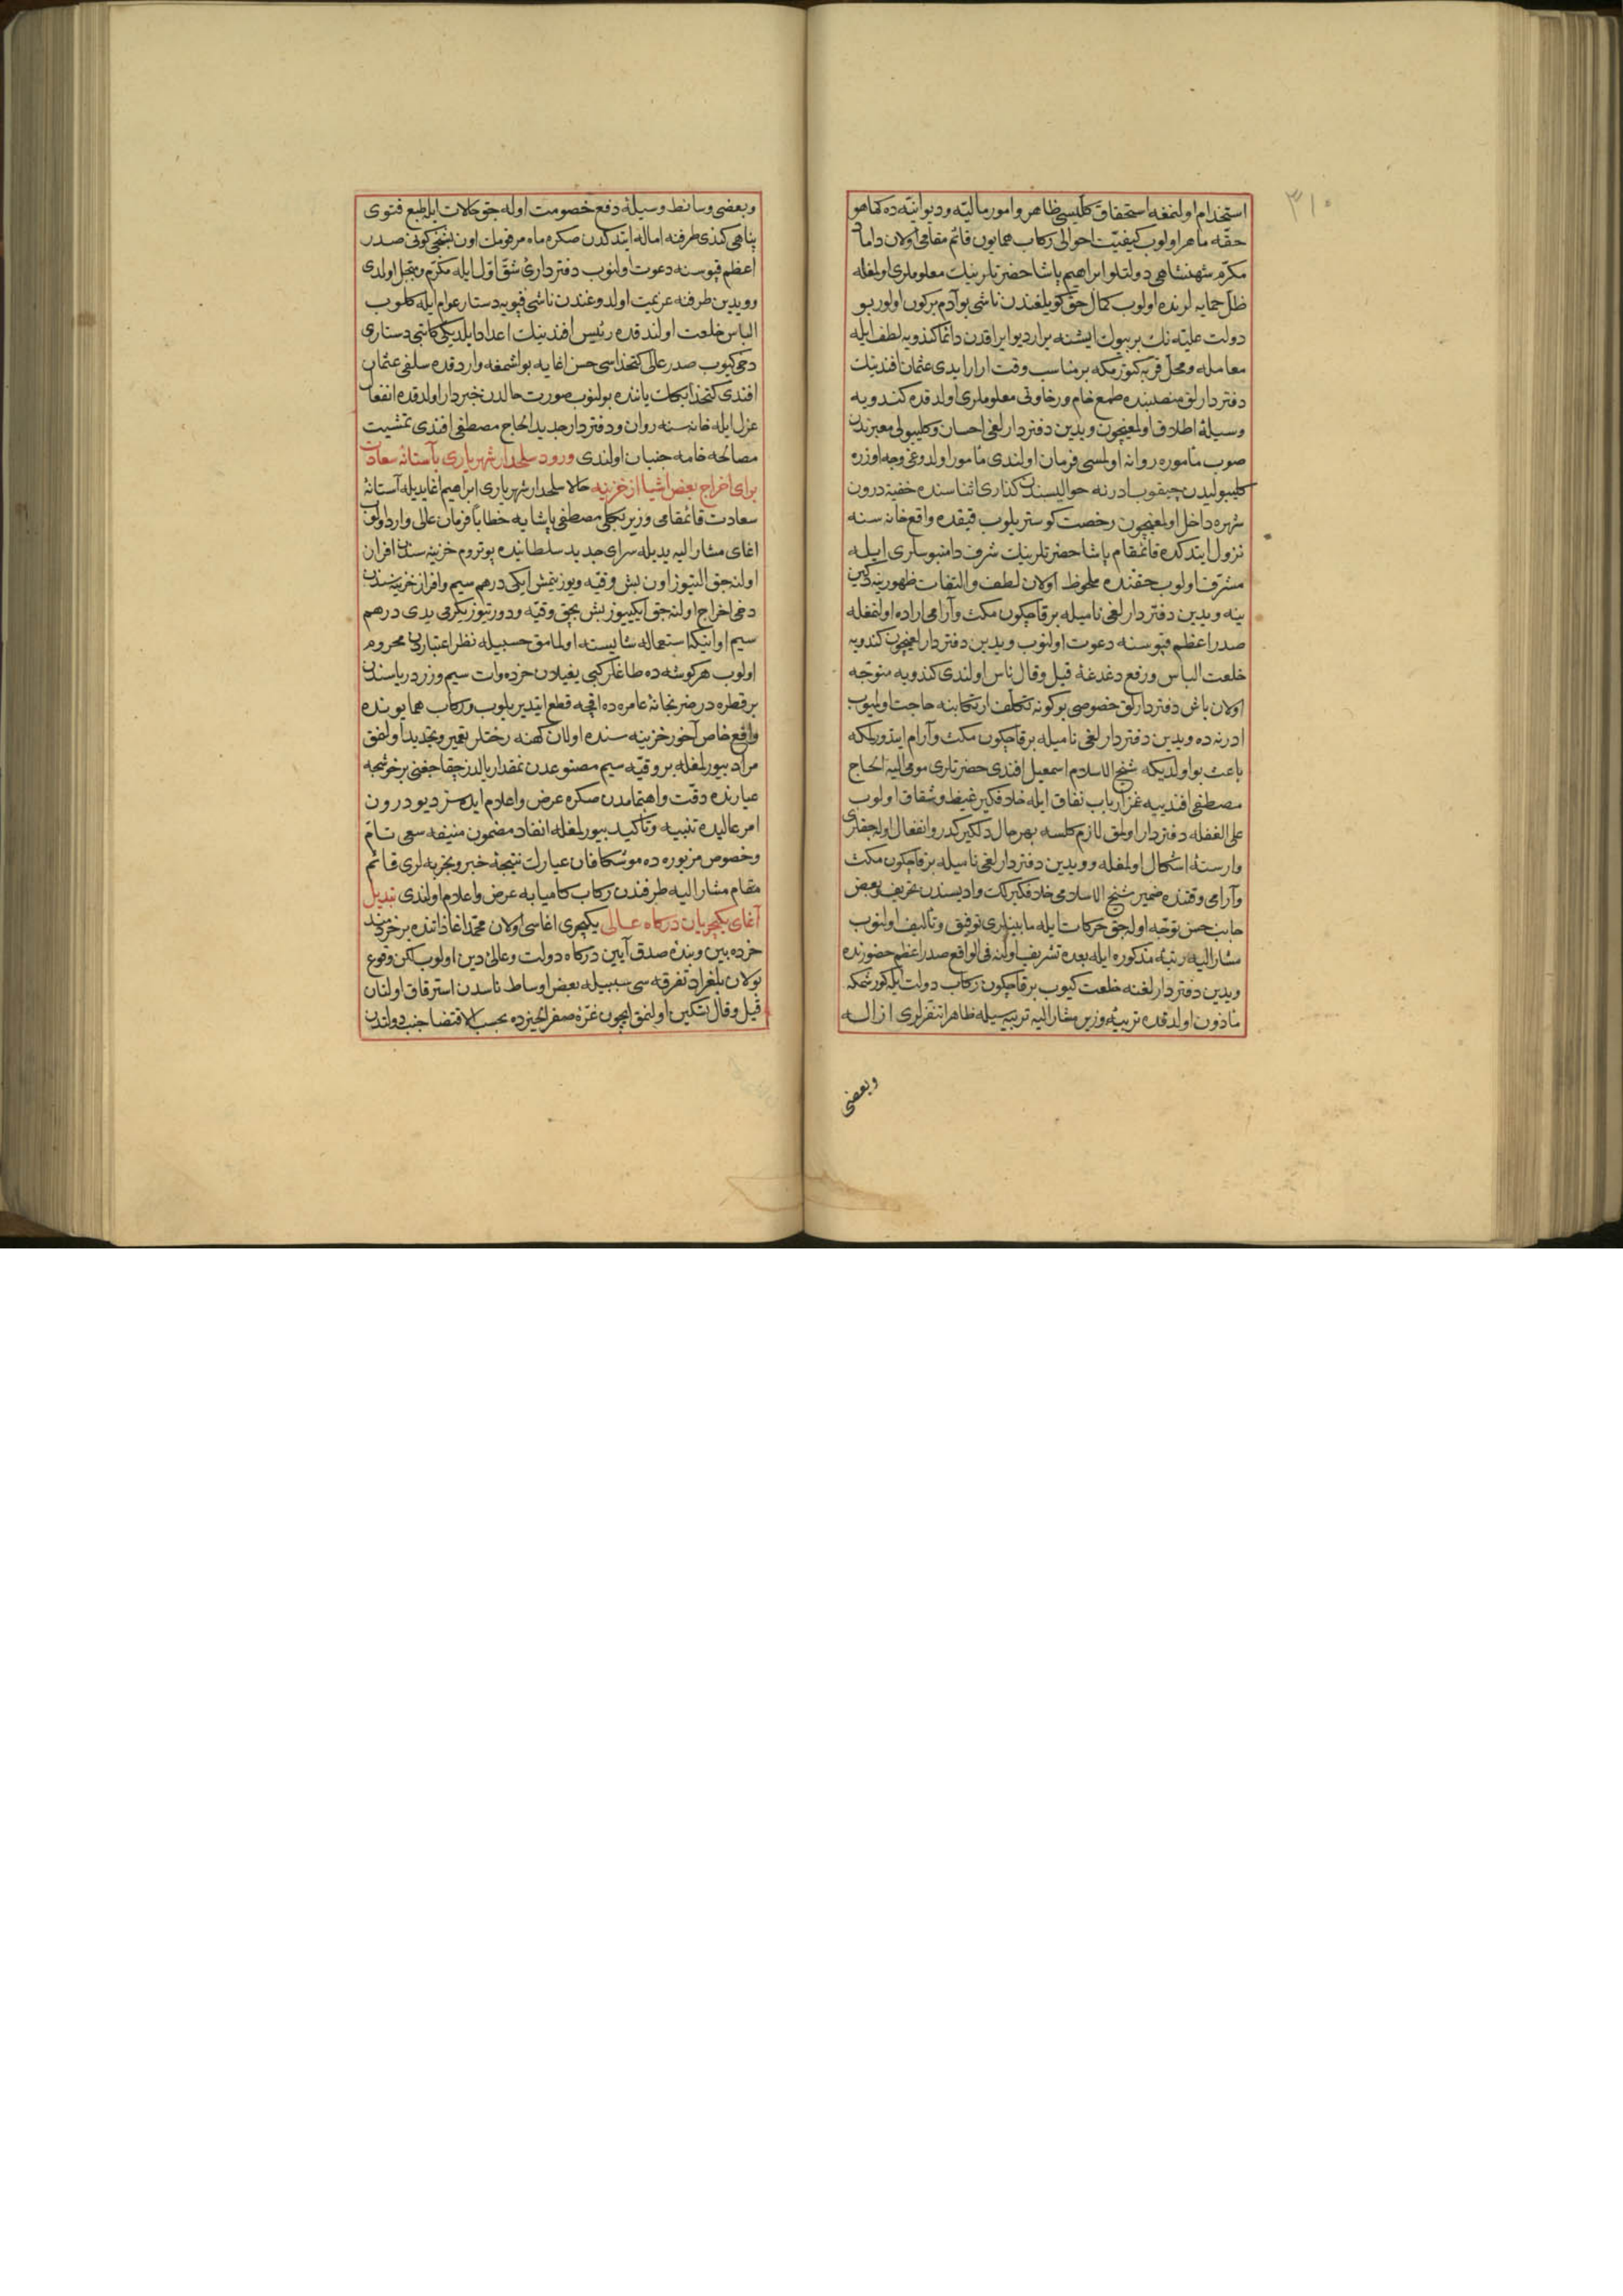 ٣١٠
استخدام اولنمغه استحقاق كليسى ظاهر و امور ماليه و ديوانيه ده كماهو
حقه ماهر اولوب كيفيت احوالى ركاب همايون قائم مقامى اولان داماد
مكرم شهنشاهى دولتلو ابراهيم پاشا حضرتلرينك معلوملرى اولمغله
ظل حمايه لرنده اولوب كمال حق كويلغندن ناشى بو آدم بركون اولور بو
دولت عليه نك بر بيوك ايشنه يرار ديو ايراقدن دائما كندويه لطف ايله
معامله و محل قربه كتورمكه بر مناسب وقت ارار ايدى عثمان افندينك
دفتردارلق منصبنده طمع خام و رخاوتى معلوملرى اولدقده كندويه
وسيلۀ اطلاق اولمغيچون ويدين دفتردارلغى احسان و كليبولى معبرندن
صوب مأموره روانه اولمسى فرمان اولندى مأمور اولدوغى وجه اوزره
كليبوليدن چيقوب ادرنه حواليسندن كذارى اثناسنده خفيۀ درون
شهره داخل اولمغيچون رخصت كوستريلوب قيقده واقع خانه سنه
نزول ايتدكده قائمقام پاشا حضرتلرينك شرف دامنبوسلرى ايله
مشرف اولوب حقنده ملحوظ اولان لطف و التفات ظهورينه دكين
ينه ويدين دفتردارلغى ناميله برقاچكون مكث و آرامى اراده اولنمغله
صدر اعظم قپوسنه دعوت اولنوب ويدين دفتردارلغيچون كندويه
خلعت الباس و رفع دغدغۀ قيل و قال ناس اولندى كندويه متوجه
اولان باش دفتردارلق خصوصى بو كونه تكلف ارتكابنه حاجت اولميوب
ادرنه ده ويدين دفتردارلغى ناميله برقاچكون مكث و آرام ايتدورلمكه
باعث بو اولديكه شيخ الاسلام اسمعيل افندى حضرتلرى مومى اليه الحاج
مصطفى افندييه غمز ارباب نفاق ايله خلافكير غيظ و شقاق اولوب
على الغفله دفتردار اولمق لازم كلسه بهر حال دلكير كدر و انفعال اوله جقلرى
وارستۀ اشكال اولمغله و ويدين دفتردارلغى ناميله برقاچكون مكث
و آرامى وقتنده ضمير شيخ الاسلامى خلافكيرلك واديسندن تحريف و بعض
جانب حسن توجه اوله جق حركات ايله مابينلرى توفيق و تأليف اولنوب
مشار اليه رتبۀ مذكوره ايله بعده تشريف اولنه فى الواقع صدر اعظم حضورنده
ويدين دفتردارلغنه خلعت كيوب برقاچكون ركاب دولت ايله كورشمكه
مأذون اولدقده تربيۀ وزير مشار اليه تربيه سيله ظاهرا تنفرلرى ازاله
وبعضى
و بعضى وسائط وسيلۀ دفع خصومت اوله جق حالات ايله طبع فتوى
پناهى كندى طرفنه اماله ايتدكدن صكره ماه مرقومك اون بشنجى كونى صدر
اعظم قپوسنه دعوت اولنوب دفتردارئ شق اول ايله مكرم و مبجل اولدى
و ويدين طرفنه عزيمت اولدوغندن ناشى قپويه دستار عوام ايله كلوب
الباس خلعت اولندقده رئيس افندينك اعداد ايلديكى كاتبى دستارى
دخى كيوب صدر عالى كتخداسى حسن اغايه بو اشمغه واردقده سلفى عثمان
افندى كتخدا بكك ياننده بولنوب صورت حالدن خبردار اولدقده انفعال
عزل ايله خانه سنه روان و دفتردار جديد الحاج مصطفى افندى تمشيت
مصالحه خامه جنبان اولندى ورود سلحدار شهريارى بآستانۀ سعادت
براى اخراج بعض اشيا از خزينه حالا سلحدار شهريارى ابراهيم اغا يديله آستانۀ
سعادت قائمقامى وزير مصطفى پاشايه خطابا فرمان عالى وارد اولوب
اغاى مشار اليه يديله سراى جديد سلطانيده خزينه سندن افراز
اولنه جق التيوز اون بش وقيه و يوز يتمش ايكى درهم سيم و افراز خزينه سندن
دخى اخراج اولنه جق ايكييوز بش بچق وقيه و دورتيوز يكرمى يدى درهم
سيم اوانينك استعماله شايسته اولمامق حسبيله نظر اعتباردن محروم
اولوب هر كوشه ده طاغلر كبى يغيلان خرده وات سيم و زر درياسندن
بر قطره درضربخانۀ عامره ده اقچه قطع ايتديريلوب و ركاب همايونده
واقع خاص آخور خزينه سنده اولان كهنه رختلر تعمير و تجديد اولنمق
مراد بيورلمغله بر وقيه سيم مصنوعدن نه مقدار يالدز چقاجغنى بر خوشجه
عيارنده دقت و اهتمامدن صكره عرض و اعلام ايده سز ديو درون
امر عاليده تنبيه و تأكيد بيورلمغله انفاد مضمون منيفه سعى تام
و خصوص مزبوره ده موشكافان عيارك نتيجۀ خبر و تجربه لرى قائم
مقام مشار اليه طرفندن ركاب كامياب عرض و اعلام اولندى تبديل
آغاى يكيچريان دركاه عالى يكيچرى اغاسى اولان محمد اغا ذاتنده بر خردمند
خرده بين و بندۀ صدق آيين دركاه دولت و عالئ دين اولوب لكن وقوع
بولان بلغراد تفرقه سى سببيله بعض اوساط ناسدن استرقاق اولنان
قيل و قال تسكين اولنمق ايچون غرۀ صفر الخيرده بحسب الاقتضا جنب دولتدن